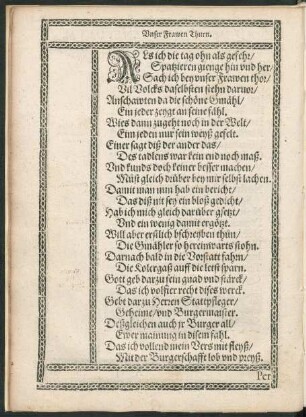 Vnser Frawen Thuren.
ALs ich die tag ohn als gefehr/
Spatzieren gienge hin vnd her/
Sach ich bey vnser Frawen thor/
Vil Volcks daselbsten stehn daruor/
Anschawten da die schöne Gmähl/
Ein jeder zeygt an seine fähl.
Wies dann zugeht noch in der Welt/
Ein jeden nur sein weyß gefelt.
Einer sagt diß der ander das/
Des tadlens war kein end noch maß.
Vnd kunds doch keiner besser machen/
Můst gleich drüber bey mir selbst lachen.
Damit man nun hab ein bericht/
Das diß nit sey ein bloß gedicht/
Hab ich mich gleich darüber gsetzt/
Vnd ein wenig damit ergötzt.
Will aber erstlich bschreyben thůn/
Die Gmähler so hereinwarts stohn.
Darnach bald in die Vorstatt fahrn/
Die Kolergaß auff die letst sparn.
Gott geb darzu sein gnad vnd stärck/
Das ich volfier recht dises werck.
Gebt darzu Herren Stattpfleger/
Geheime/ vnd Burgermaister.
Deßgleichen auch jr Burger all/
Ewer mainung in disem fahl.
Das ich vollend mein Vers mit fleyß/
Mit der Burgerschafft lob vnd preyß.
Per